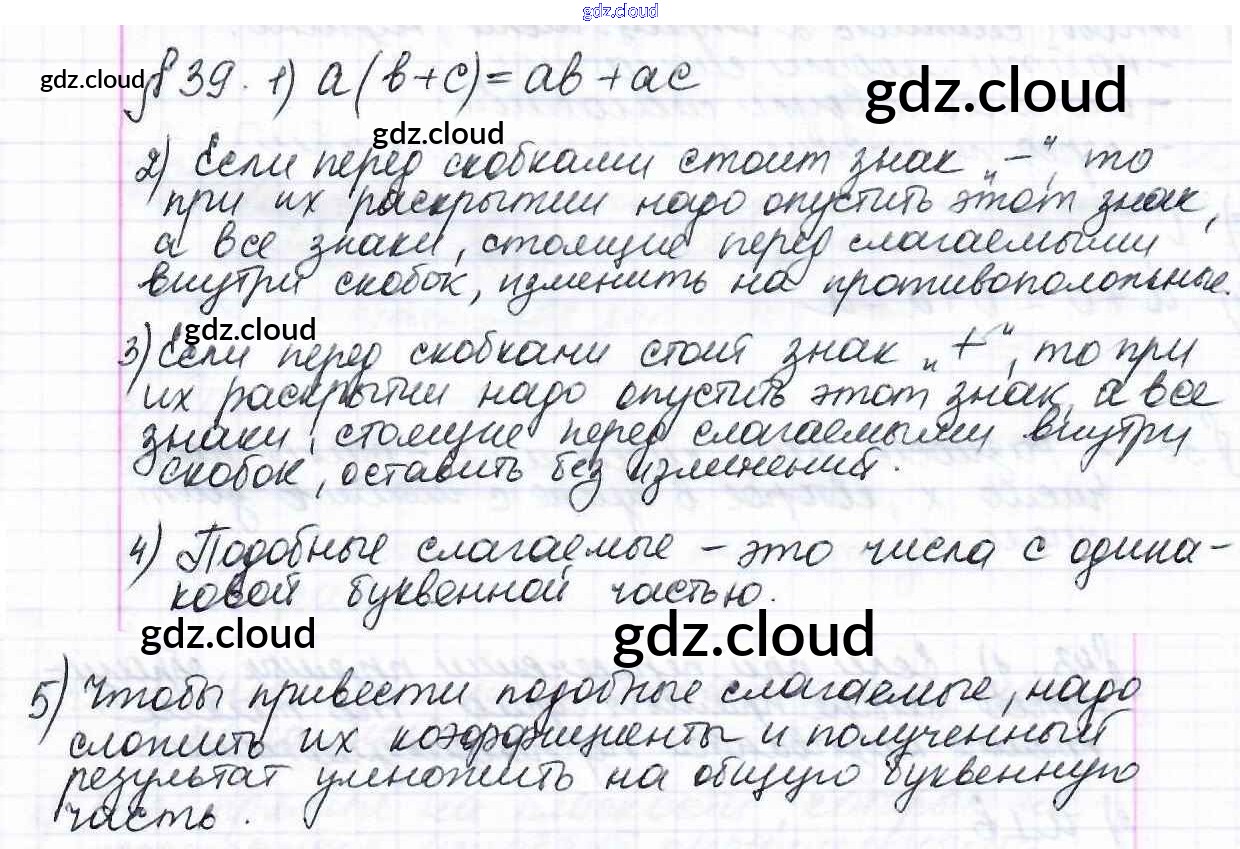 gdz.cloud
gdz.cloud § 39. 1) a(b+c)=ab+ac gdz.cloud
gdz.cloud
2) Если перед скобками стоит знак „–“, то
при их раскрытии надо опустить этот знак,
а все знаки, стоящие перед слагаемыми
внутри скобок, изменить на противоположные.
gdz.cloud
3) Если перед скобками стоит знак „+“, то при
их раскрытии надо опустить этот знак, а все
знаки, стоящие перед слагаемыми внутри
скобок, оставить без изменений.
4) Подобные слагаемые – это числа с одина-
ковой буквенной частью.
gdz.cloud gdz.cloud
5) Чтобы привести подобные слагаемые, надо
сложить их коэффициенты и полученный
результат умножить на общую буквенную
часть.